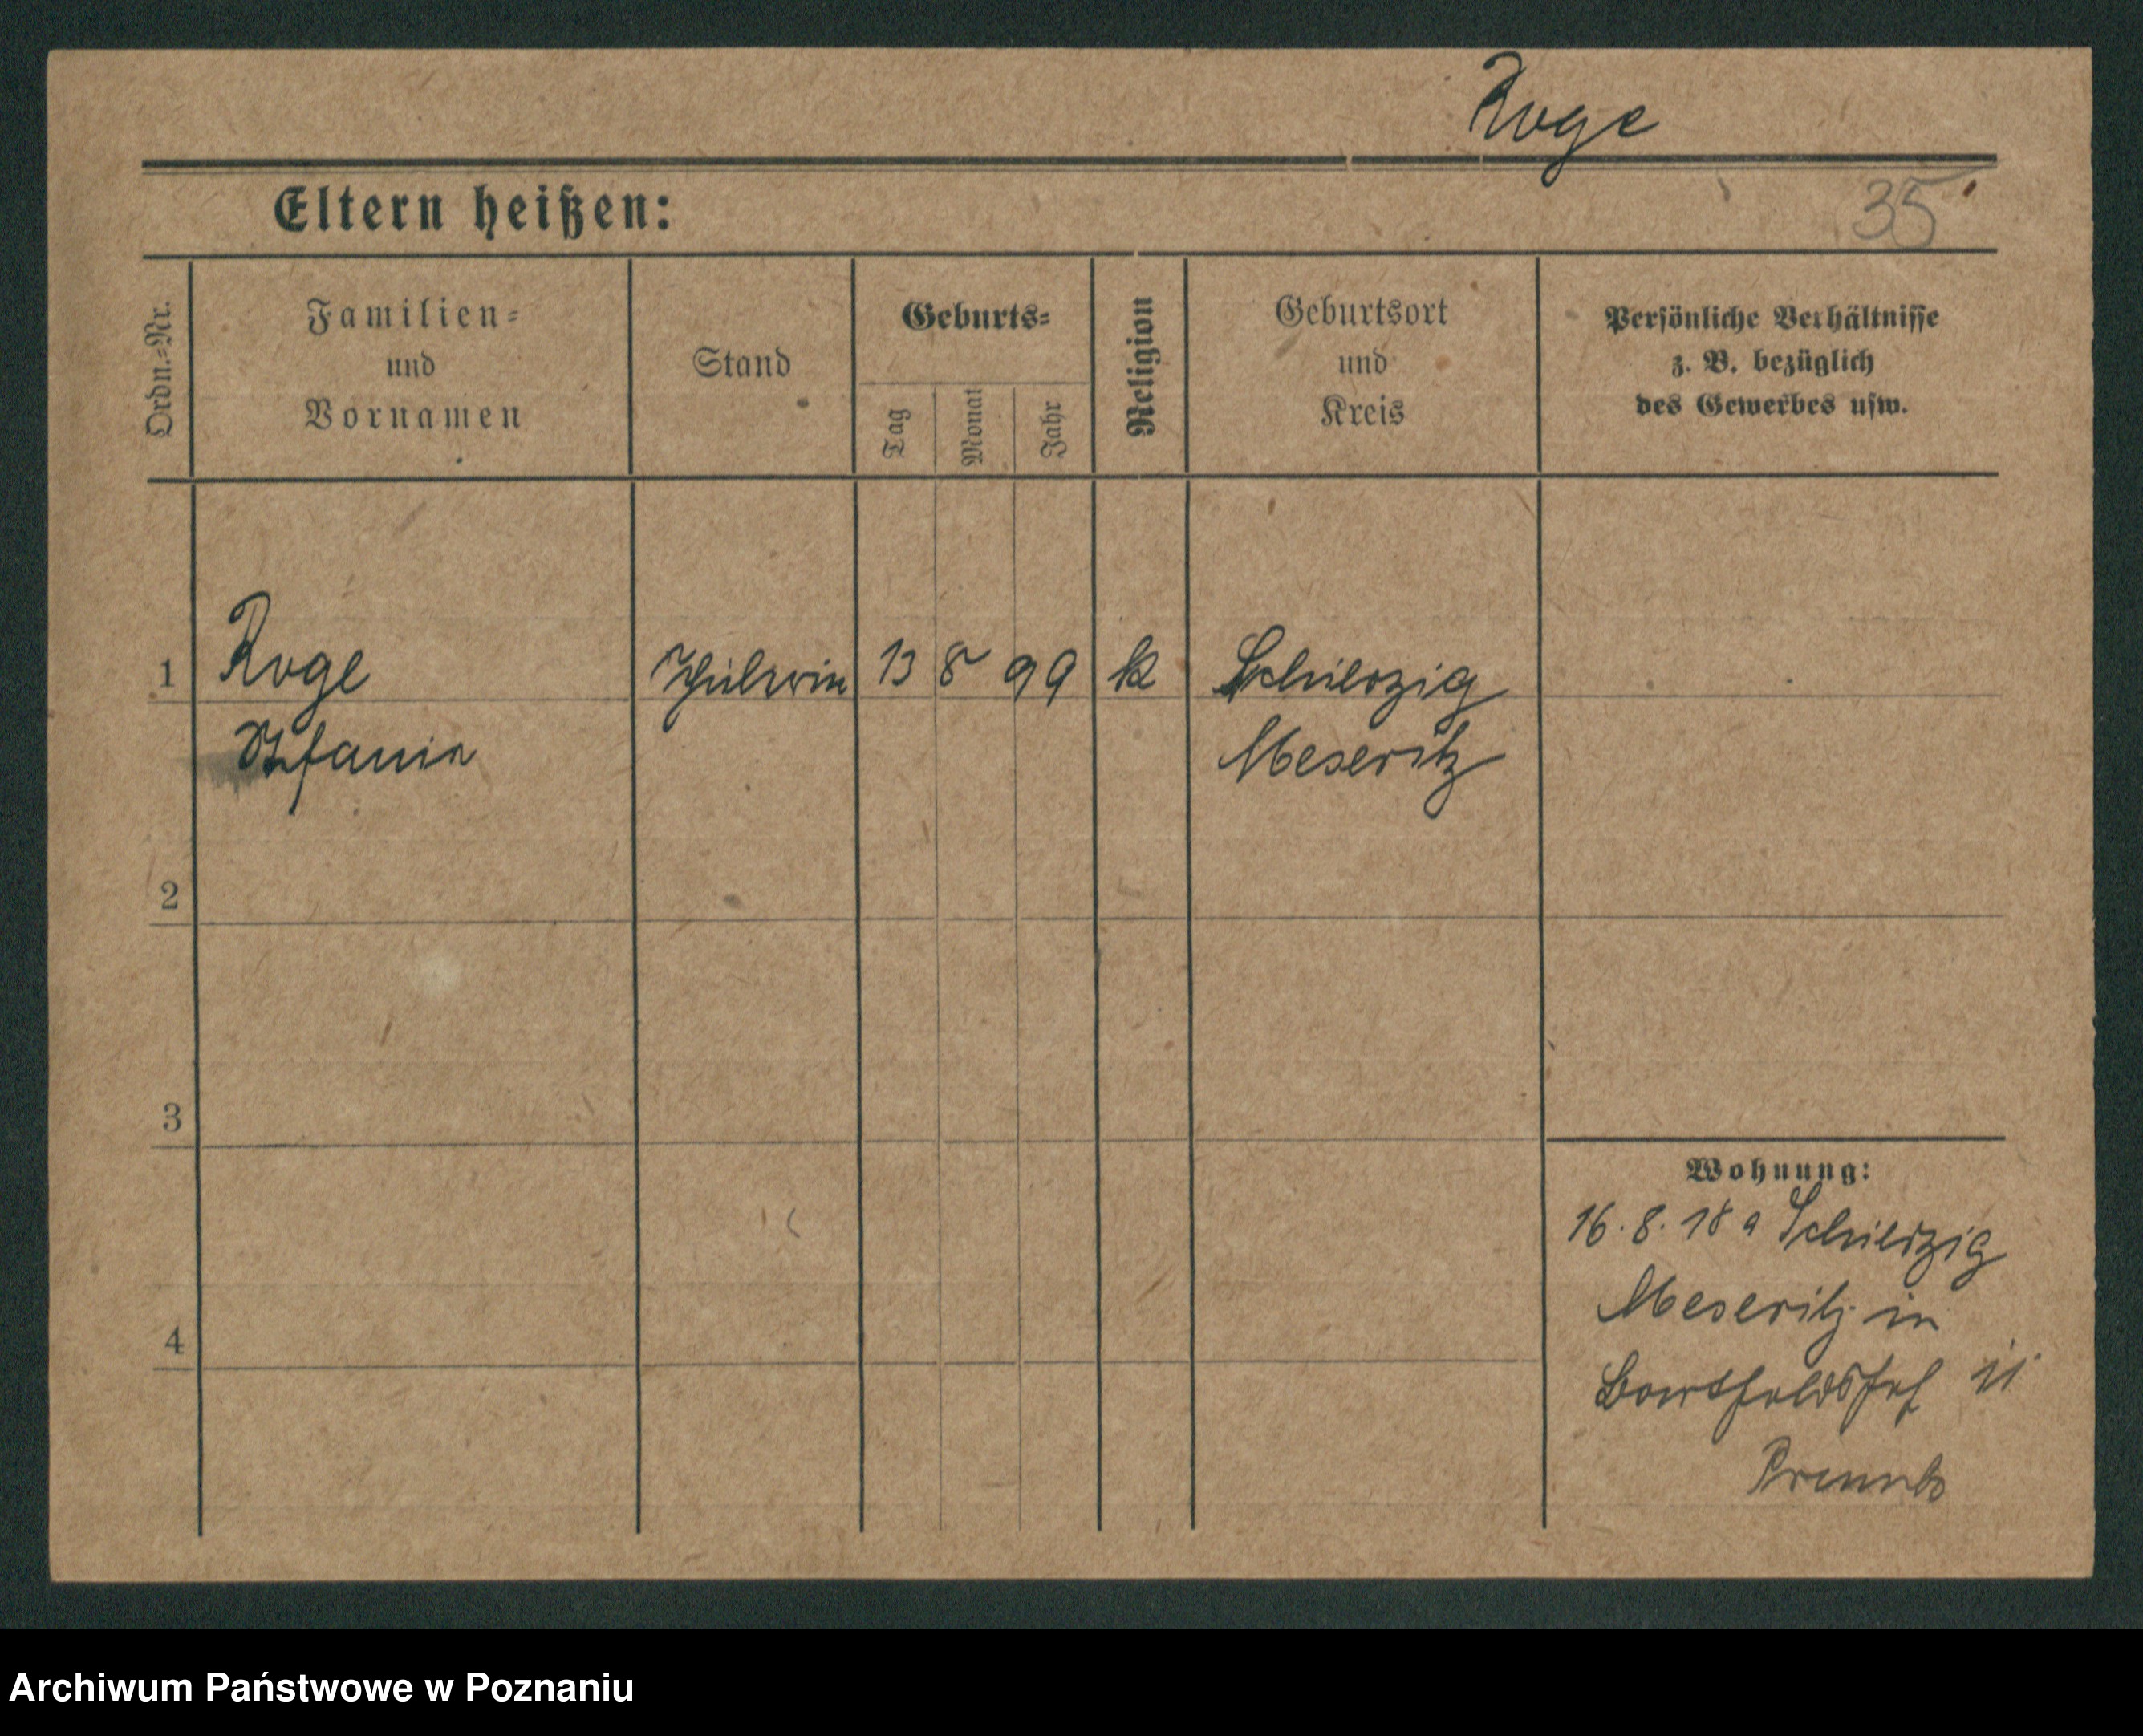 Roge
Eltern heißen:
35
Ordn.=Nr.
Familien=
und
Vornamen
Stand
Geburts=
Tag
Monat
Jahr
Religion
Geburtsort
und
Kreis
Persönliche Verhältnisse
z. B. bezüglich
des Gewerbes usw.
1 Roge 13 8 99 k Schierzig
Stefania Meseritz
2
3
4
Wohnung:
16. 8. 18 a Schierzig
Meseritz in
11
Archiwum Państwowe w Poznaniu